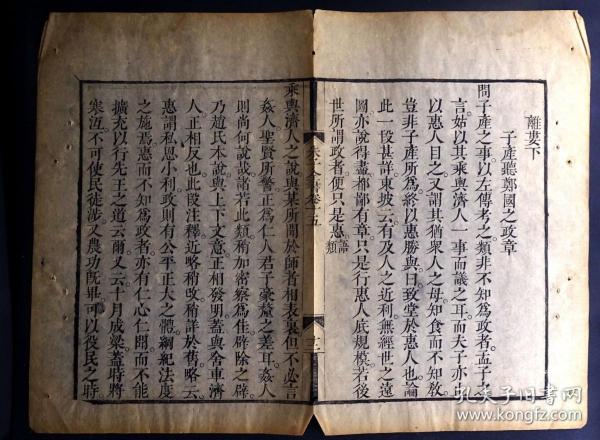 離婁下
子產聽鄭國之政章
問子產之事以左傳考之類非不知為政者孟子之
言姑以其乘輿濟人一事而議之耳而夫子亦止
以惠人目之又謂其猶眾人之母知食而不知敎
豈非子產所為終以惠勝與曰致堂於惠人也論
此一段甚詳東坡云有及人之近利無經世之遠
圖亦說得盡都鄙有章只是行惠人底規模若後
世所謂政者便只是惠語類
朱子全書卷十五
十三
乘輿濟人之說與某所聞於師者相表裏但不必言
姦人聖賢所警正為仁人君子豪釐之差耳姦人
則尚何說哉諸若此類稍加密察為佳辟除之辟
乃趙氏本說與上下文意正相發明蓋與舍車濟
人正相反也此段注釋近略稍改稍詳於舊略云
惠謂私恩小利政則有公平正大之體綱紀法度
之施焉惠而不知為政者亦有仁心仁聞而不能
擴充以行先王之道云爾又云十月成梁蓋時將
寒沍不可使民徒涉又農功旣畢可以役民之時
孔夫子旧书网
www.kongfz.com